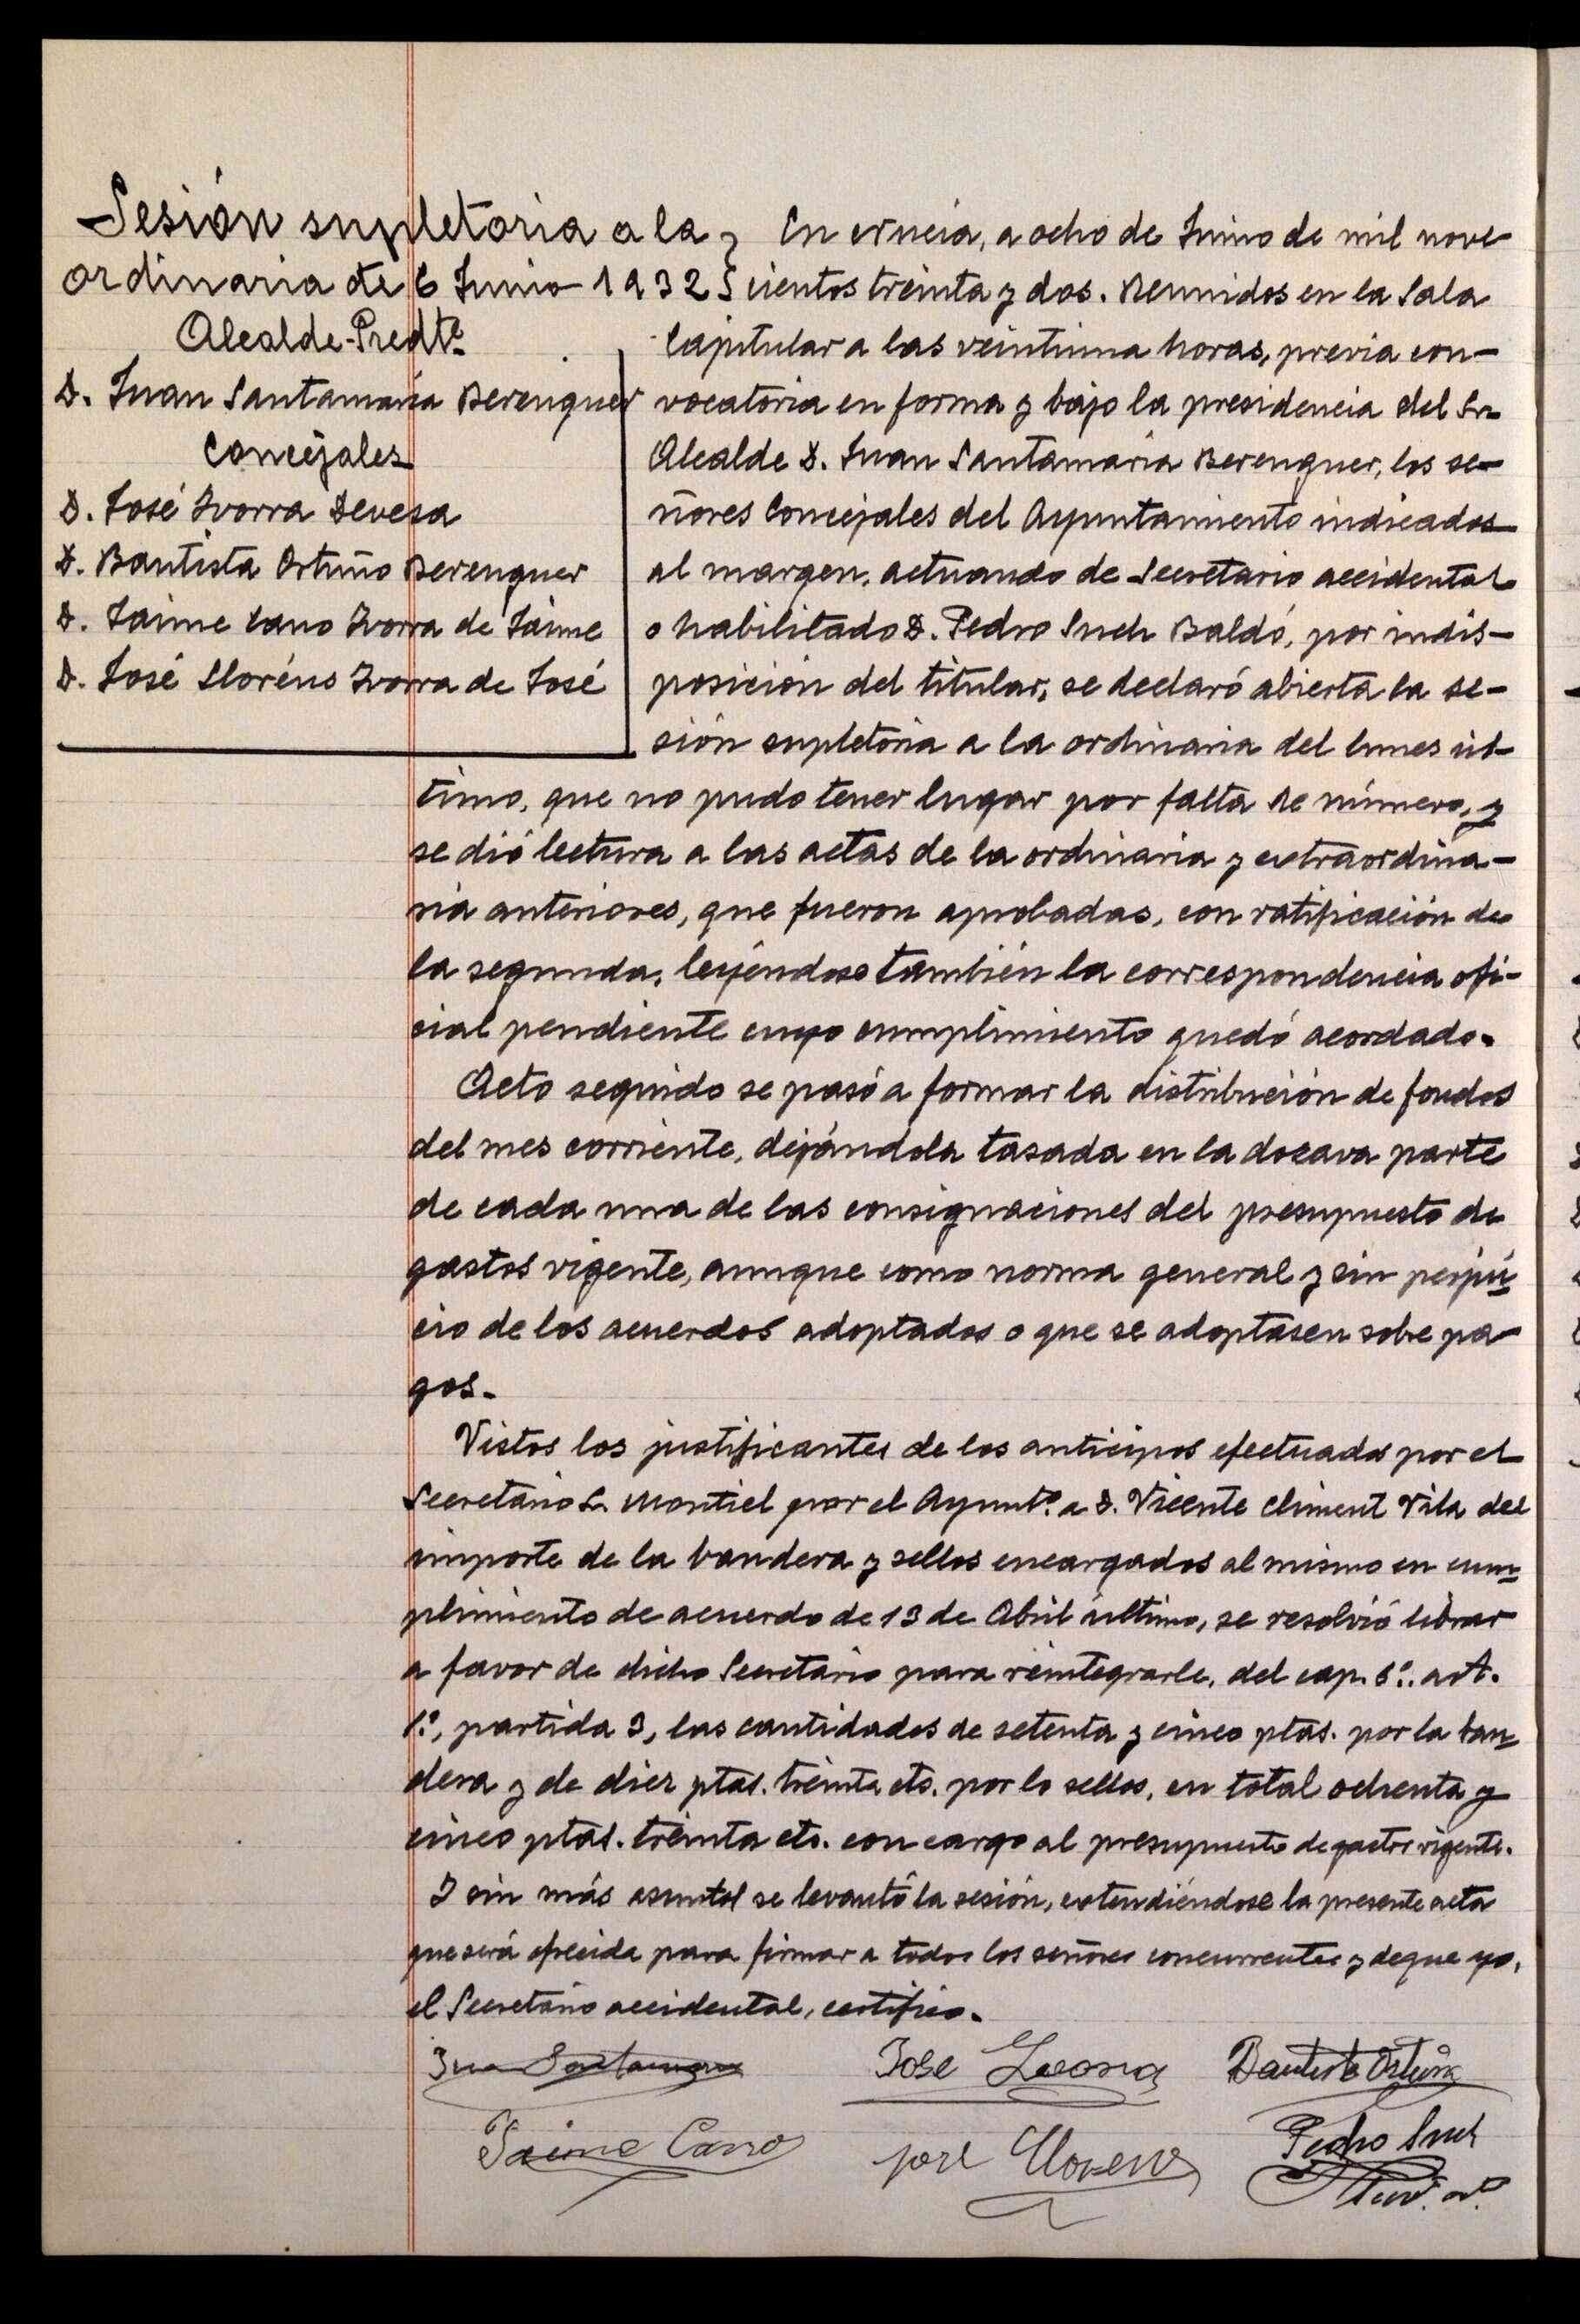 Sesión supletoria a la
ordinaria de 6 Junio 1932
Alcalde-Predte.
D. Juan Santamaría Berenguer
Concejales
D. José Ivorra Devesa
D. Bautista Ortuño Berenguer
D. Jaime Cano Ivorra de Jaime
D. José Lloréns Ivorra de José
En Nucia, a ocho de Junio de mil nove
cientos treinta y dos. Reunidos en la Sala
Capitular a las veintiuna horas, previa con-
vocatoria en forma y bajo la presidencia del Sr.
Alcalde D. Juan Santamaría Berenguer, los se-
ñores Concejales del Ayuntamiento indicados
al margen, actuando de Secretario accidental
o habilitado D. Pedro Such Baldó, por indis-
posición del titular, se declaró abierta la se-
sión supletoria a la ordinaria del lunes úl-
timo, que no pudo tener lugar por falta de número, y
se dió lectura a las actas de la ordinaria y extraordina-
ria anteriores, que fueron aprobadas, con ratificación de
la segunda, leyéndose también la correspondencia ofi-
cial pendiente cuyo cumplimiento quedó acordado.
Acto seguido se pasó a formar la distribución de fondos
del mes corriente, dejándola tasada en la dozava parte
de cada una de las consignaciones del presupuesto de
gastos vigente, aunque como norma general y sin perjui
cio de los acuerdos adoptados o que se adoptasen sobre pa-
gos.
Vistos los justificantes de los anticipos efectuados por el
Secretario Sr. Montiel por el Ayuntº. a D. Vicente Climent Vila del
importe de la bandera y sellos encargados al mismo en cum
plimiento de acuerdo de 13 de Abril último, se resolvió librar
a favor de dicho Secretario para reintegrarle, del cap. 6º. art.
1º, partida 3, las cantidades de setenta y cinco ptas. por la ban
dera y de diez ptas. treinta cts. por lo sellos, en total ochenta y
cinco ptas. treinta cts. con cargo al presupuesto de gastos vigente.
Y sin más asuntos se levantó la sesión, extendiéndose la presente acta
que será ofrecida para firmar a todos los señores concurrentes y de que yo,
el Secretario accidental, certifico.
Juan Santamaria José Ivorra Bautista Ortuño
Jaime Cano José Llorens Pedro Such